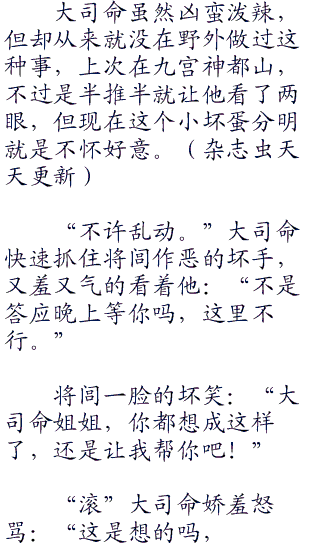 大司命虽然凶蛮泼辣，
但却从来就没在野外做过这
种事，上次在九宫神都山，
不过是半推半就让他看了两
眼，但现在这个小坏蛋分明
就是不怀好意。（杂志虫天
天更新）
“不许乱动。”大司命
快速抓住将闾作恶的坏手，
又羞又气的看着他：“不是
答应晚上等你吗，这里不
行。”
将闾一脸的坏笑：“大
司命姐姐，你都想成这样
了，还是让我帮你吧！”
“滚”大司命娇羞怒
骂：“这是想的吗，